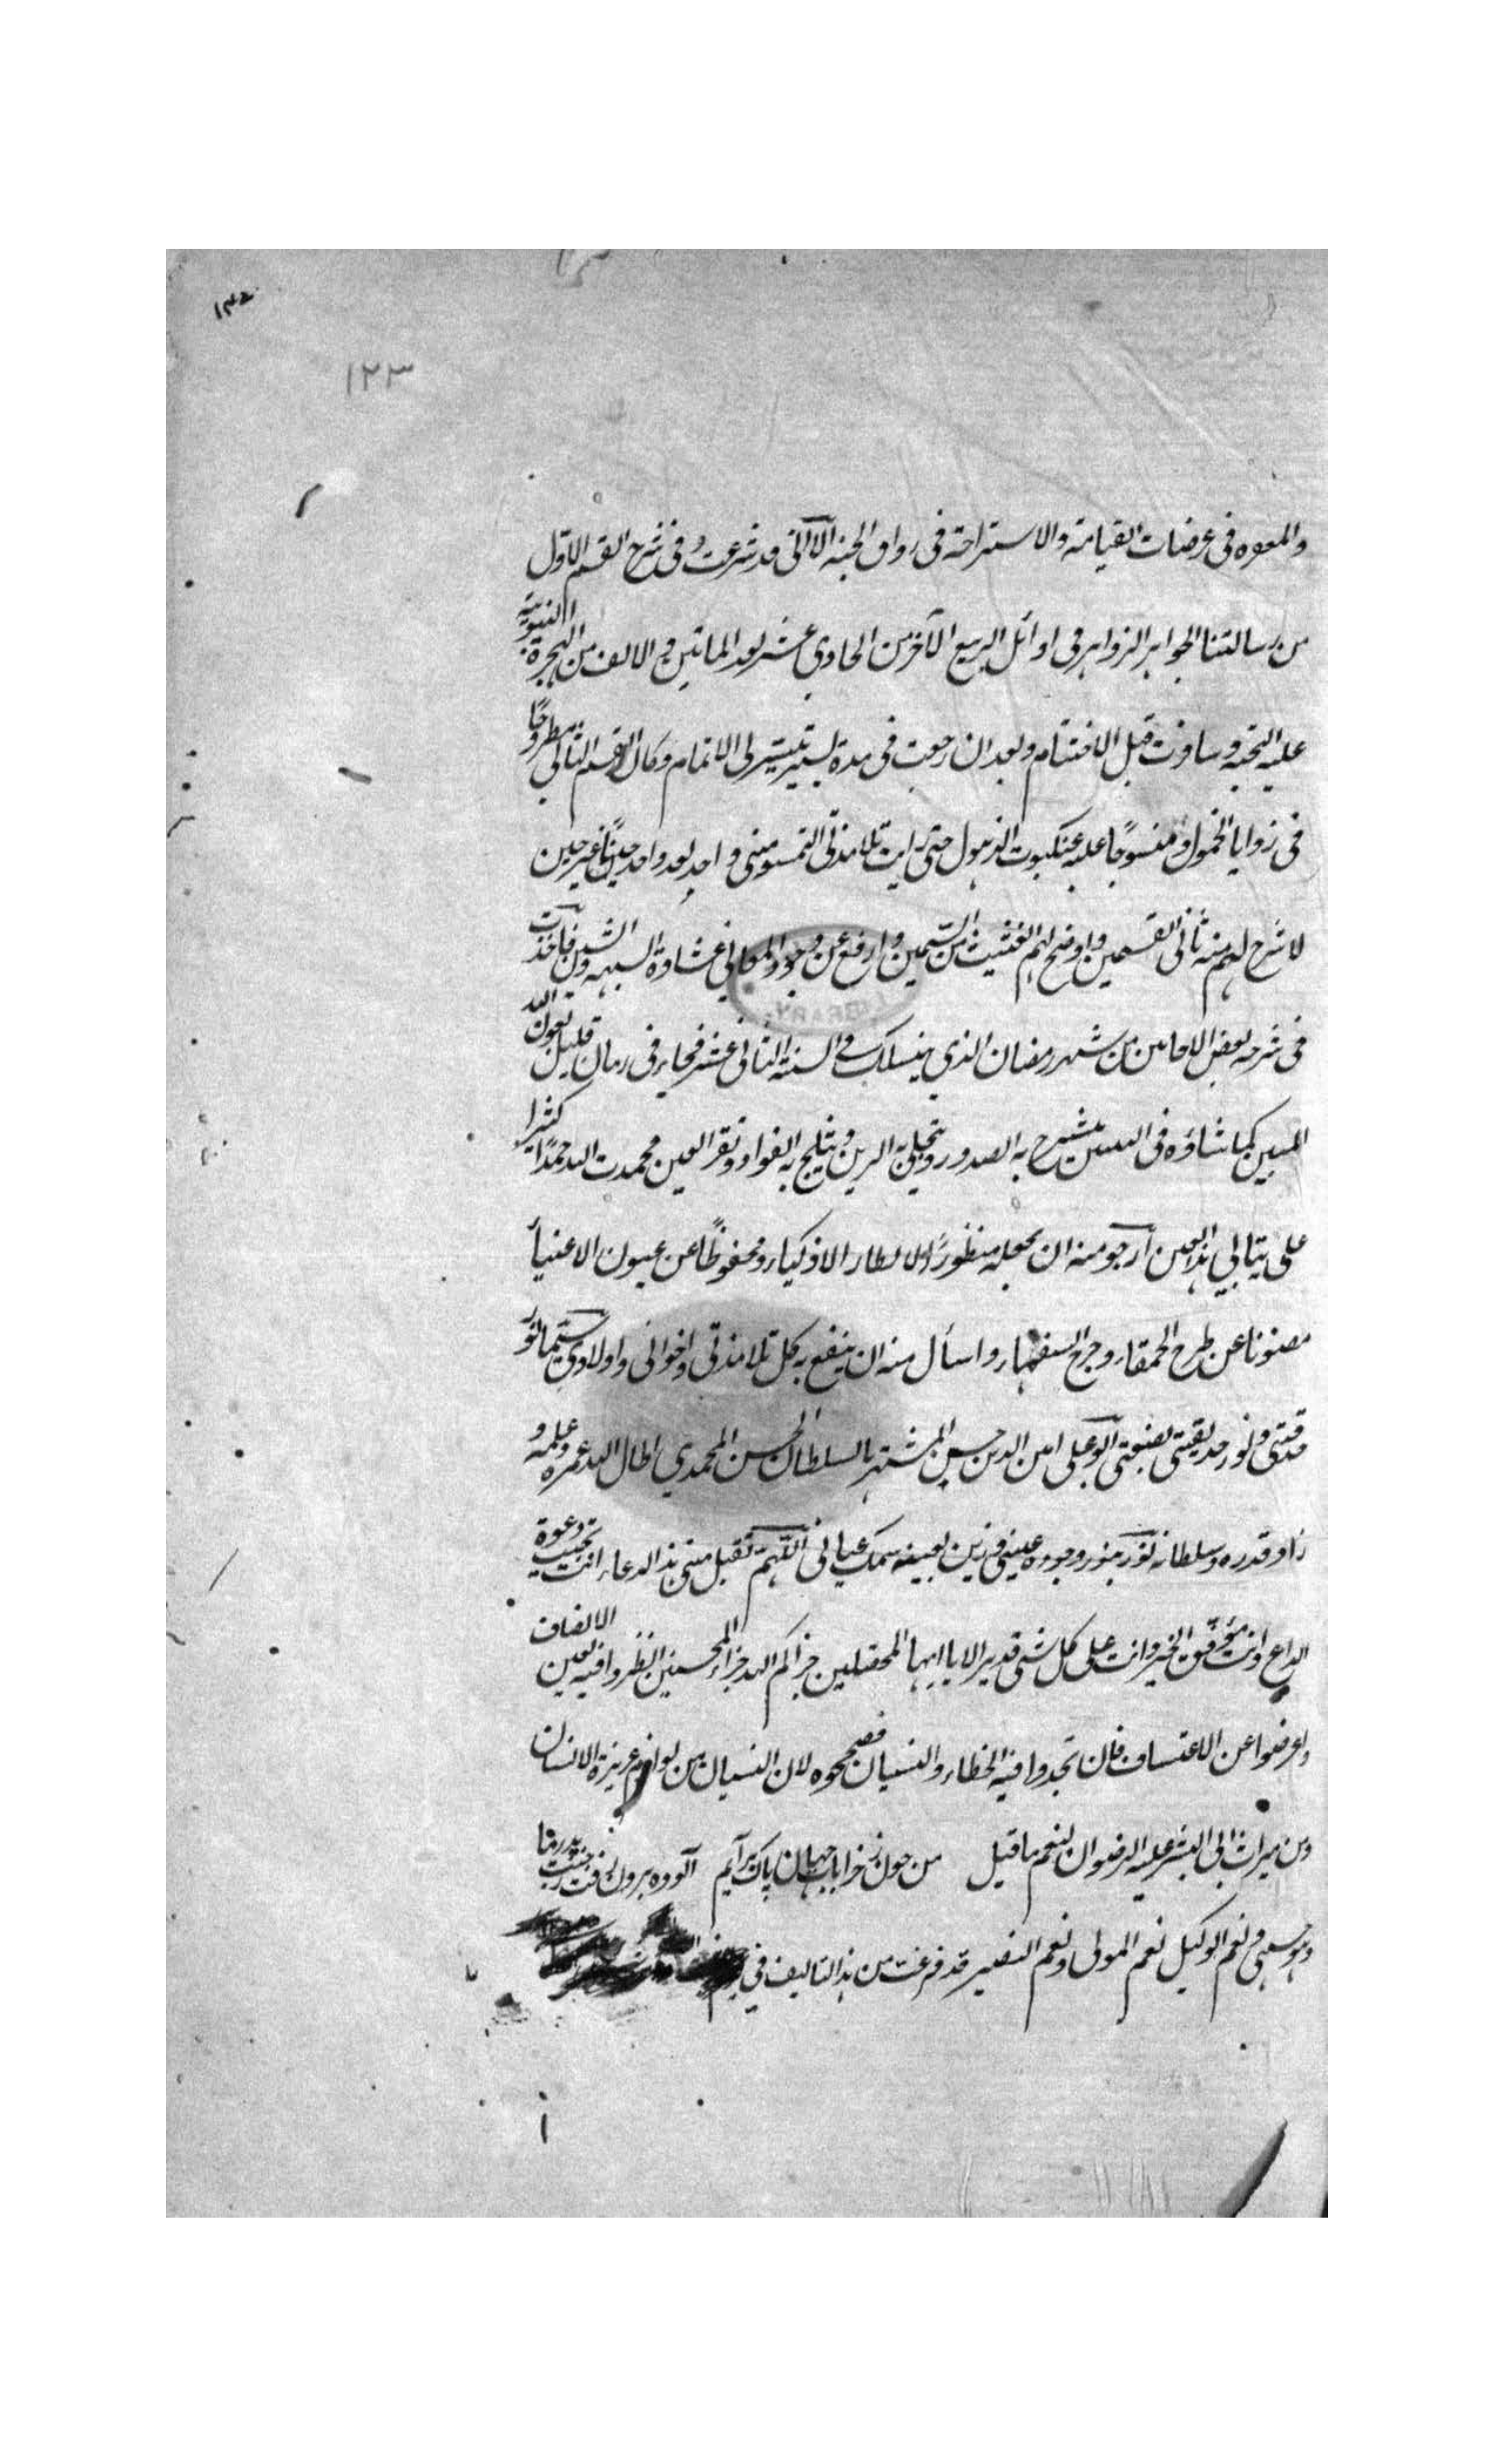 ١٢٣
والمعوه فى عرضات القيامة والاستراحة فى رواق الجنة الا انى قد شرعت فى شرح القسم الاول
من رسالتنا الجواهر الزواهر فى اوائل الربيع الآخر من الحادي عشر بعد المأتين و الالف من الهجرة النبوية
عليه التحية و سافرت قبل الاختتام وبعد ان رجعت فى مدة يسير تيسر لى الاتمام وكان القسم الثانى مطروحًا
فى زوايا الخمول و منسوجًا عليه عنكبوت الذهول حتى رايت تلامذتى التمسو منى واحد بعد واحد حينًا غير حين
لاشرح لهم منه ثانى القسمين و اوضح لهم الغثيث من السمين و ارفع عن وجوه المعانى غشاوة الشبهه و الشين فاخذت
فى شرحه بعض الاحايين من شهر رمضان الذي ينسلك فى السنة الثانى عشر فجاء فى زمان قليل بعون الله
المبين كما نشاؤه فى ينشرح به الصدور وينجلى به الرين و يثلج به الفواد و تقر العين فحمدت الله حمدًا كثيرا
على هذا ارجو منه ان يجعله منظورًا لانظار الاذكياء و محفوظًا عن عيون الاغنياء
مصئونا عن طرح الحمقاء و جرح السفهاء و اسأل منه ان ينفع به كل تلامذتى و اخوانى و اولادي سيما نور
حدقتى و نور حديقتى بضعتى ابو على امين الدين حسين المشتهر بالسلطان الحسن المحمدي اطال الله عمره و علمه و
زاد قدره و سلطانه نور بنور وجوده عينى و زين اللهم تقبل منى هذا الدعاء انت تجيب دعوة
الداع و انت موفق الخير و انت على كل شئ قدير الا يا ايها المحصلين جزاكم الله جزاء المحسنين انظروا فيه بعين الانصاف
و اعرضوا عن الاعتساف فان تجدوا فيه الخطاء و النسيان فصححوه لان النسيان من لوازم غريزة الانسان
و من ميراث ابى البشر عليه الرضوان لنعم ما قيل من چون ز خرابات جهان پاك برآيم آلوده برون رفت ز جنت پدر ما
و هو حسبى و نعم الوكيل نعم المولى و نعم النصير قد فرغت من هذا التاليف فى